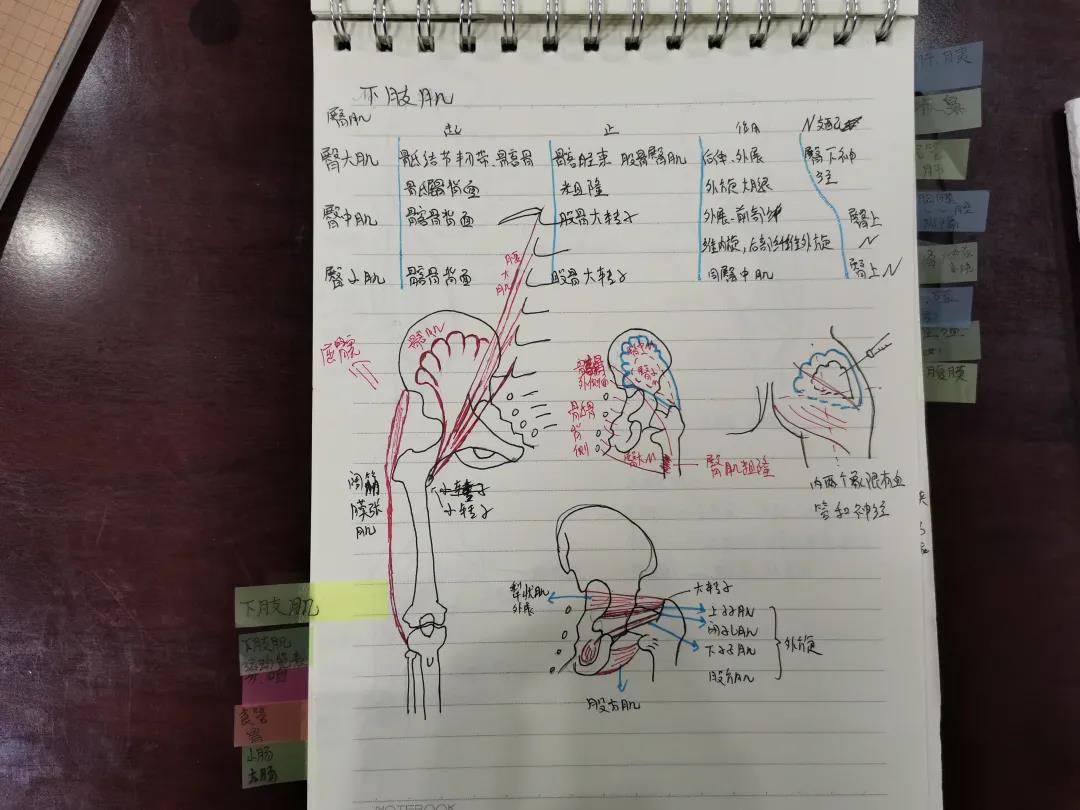 下肢肌
臀肌
起 止 作用 N支配
臀大肌 骶结节韧带、髂骨 髂胫束 股骨臀肌 后伸、外展 臀下神
骶髂背面 粗隆 外旋大腿 经
臀中肌 髂骨背面 股骨大转子 外展、前部纤 臀上
维内旋,后部纤维外旋 N
臀小肌 髂骨背面 股骨大转子 同臀中肌 臀上N
腰
大
肌
髂肌
屈髋
阔筋
膜张
肌
小转子
臀中N
臀小
外侧面
骶骨
背
侧
臀大N
臀肌粗隆
内两个象限有血
管和神经
梨状肌
外展
大转子
上孖肌
闭孔肌
下孖肌
股方肌
外旋
股方肌
下肢肌
下肢肌
食管
胃
小肠
大肠
腹膜
NOTEBOOK